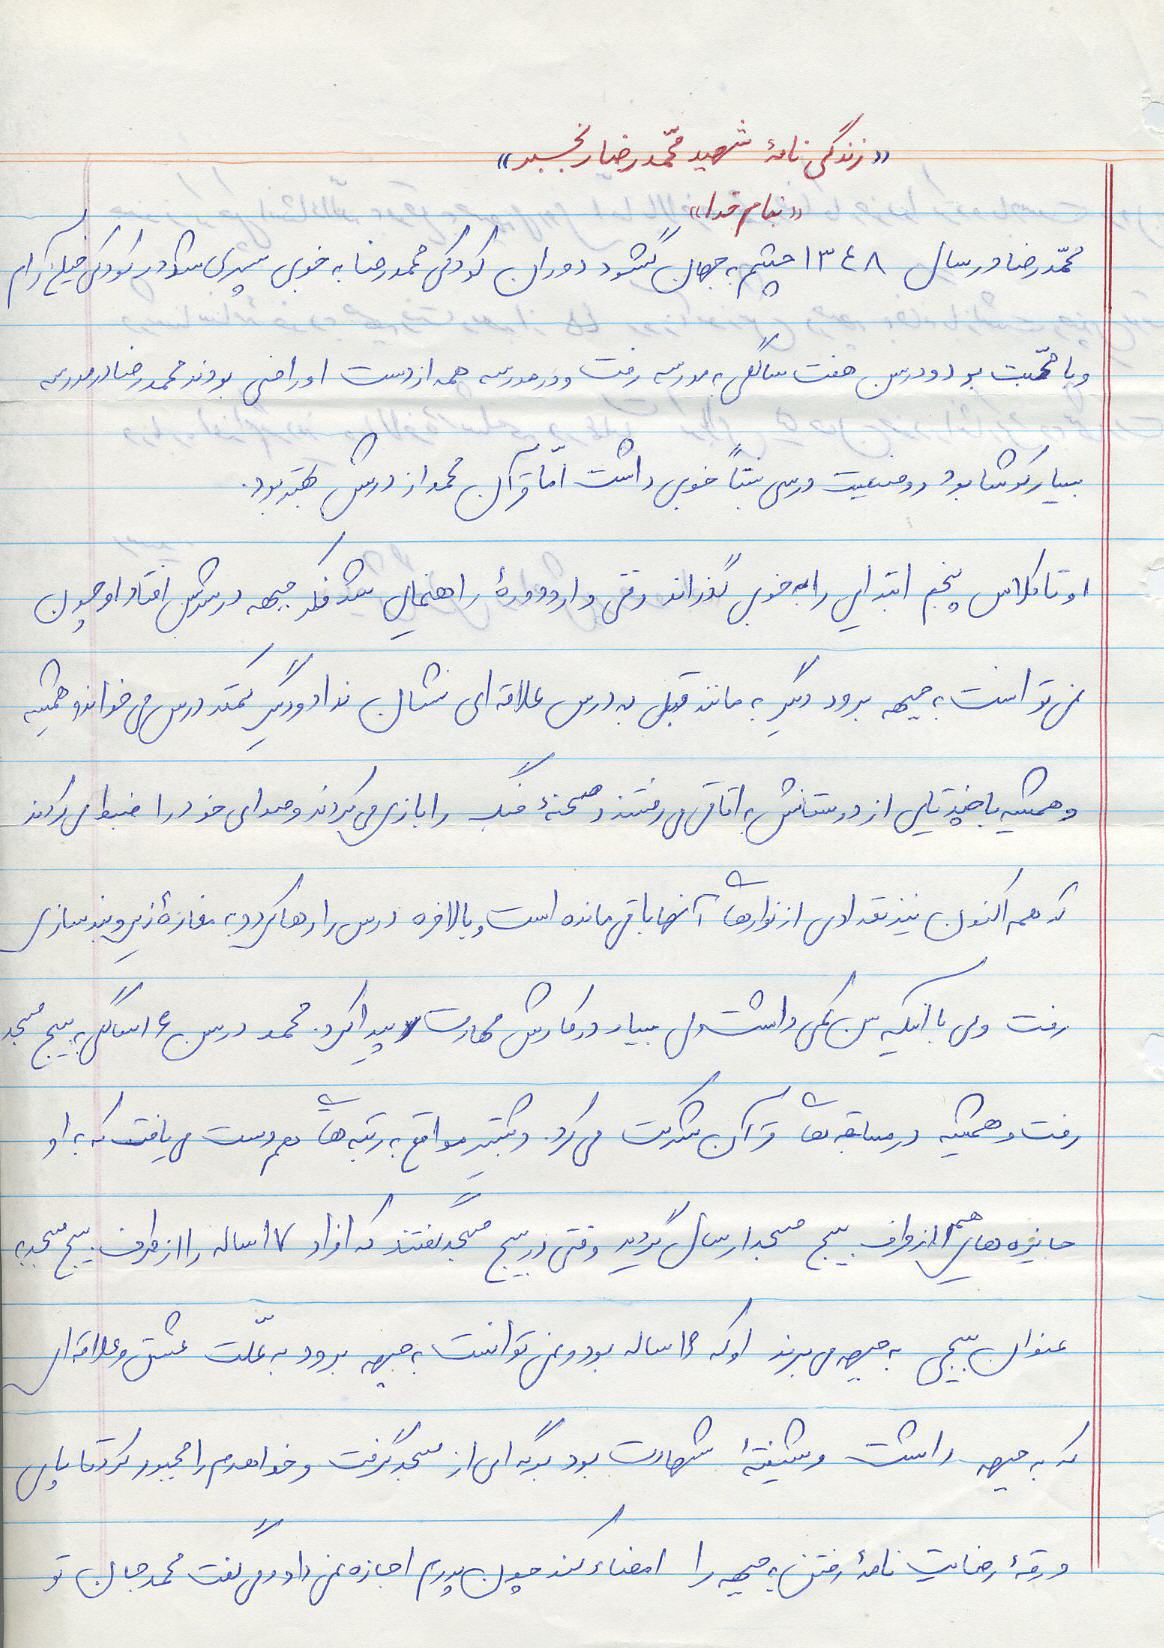 «زندگی نامهٔ شهید محمّد رضا رنجبر»
«بنام خدا»
محمّد رضا در سال ۱۳۴۸ چشم به جهان گشود دوران کودکی محمد رضا به خوبی سپری شد و در کودکی خیلی آرام
و با محبّت بود و در سن هفت سالگی به مدرسه رفت و در مدرسه همه از دست او راضی بودند محمد رضا در مدرسه
بسیار کوشا بود و وضعیت درسی نسبتاً خوبی داشت امّا قرآن محمد از درسش بهتر بود.
او تا کلاس پنجم ابتدایی را به خوبی گذراند وقتی وارد دورهٔ راهنمایی شد فکر جبهه در سرش افتاد او چون
نمی توانست به جبهه برود دیگر به مانند قبل به درس علاقه ای نشان نداد و دیگر کمتر درس می خواند و همیشه
و همیشه با چند تایی از دوستانش به اتاق می رفتند و صحنهٔ جنگ را بازی می کردند و صدای خود را ضبط می کردند
که هم اکنون نیز تعدادی از نوارهای آنها باقی مانده است و بالاخره درس را رها کرد و به مغازهٔ در و پنجره سازی
رفت ولی با آنکه سن کمی داشت ولی بسیار در کارش مهارت پیدا کرد. محمد در سن ۱۶ سالگی به بسیج مسجد
رفت و همیشه در مسابقه های قرآن شرکت می کرد. و بیشتر مواقع به رتبه های هم دست می یافت که به او
جایزه هایی هم از طرف بسیج مسجد ارسال گردید وقتی در بسیج مسجد گفتند که افراد ۱۷ ساله را از طرف بسیج مسجد به
عنوان بسیجی به جبهه می برند او که ۱۶ ساله بود و نمی توانست به جبهه برود به علّت عشق و علاقه ای
که به جبهه داشت و شیفتهٔ شهادت بود برگه ای از مسجد گرفت و خواهرم را مجبور کرد تا پای
ورقهٔ رضایت نامهٔ رفتن به جبهه را امضاء کند چون پدرم اجازه نمی داد و می گفت محمد جان تو